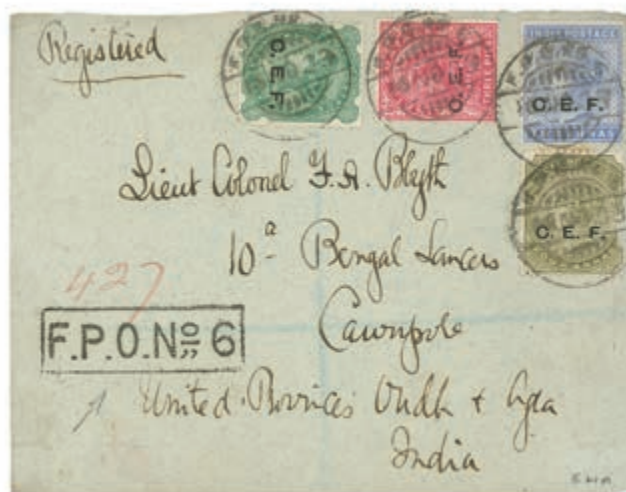 Registered
C. E. F.
C. E. F.
INDIA POSTAGE
C. E. F.
C. E. F.
Lieut Colonel F. A. Blyth
10ᵃ Bengal Lancers
427
Cawnpole
F.P.O. Nº 6
United Provinces Oudh + Agra
India